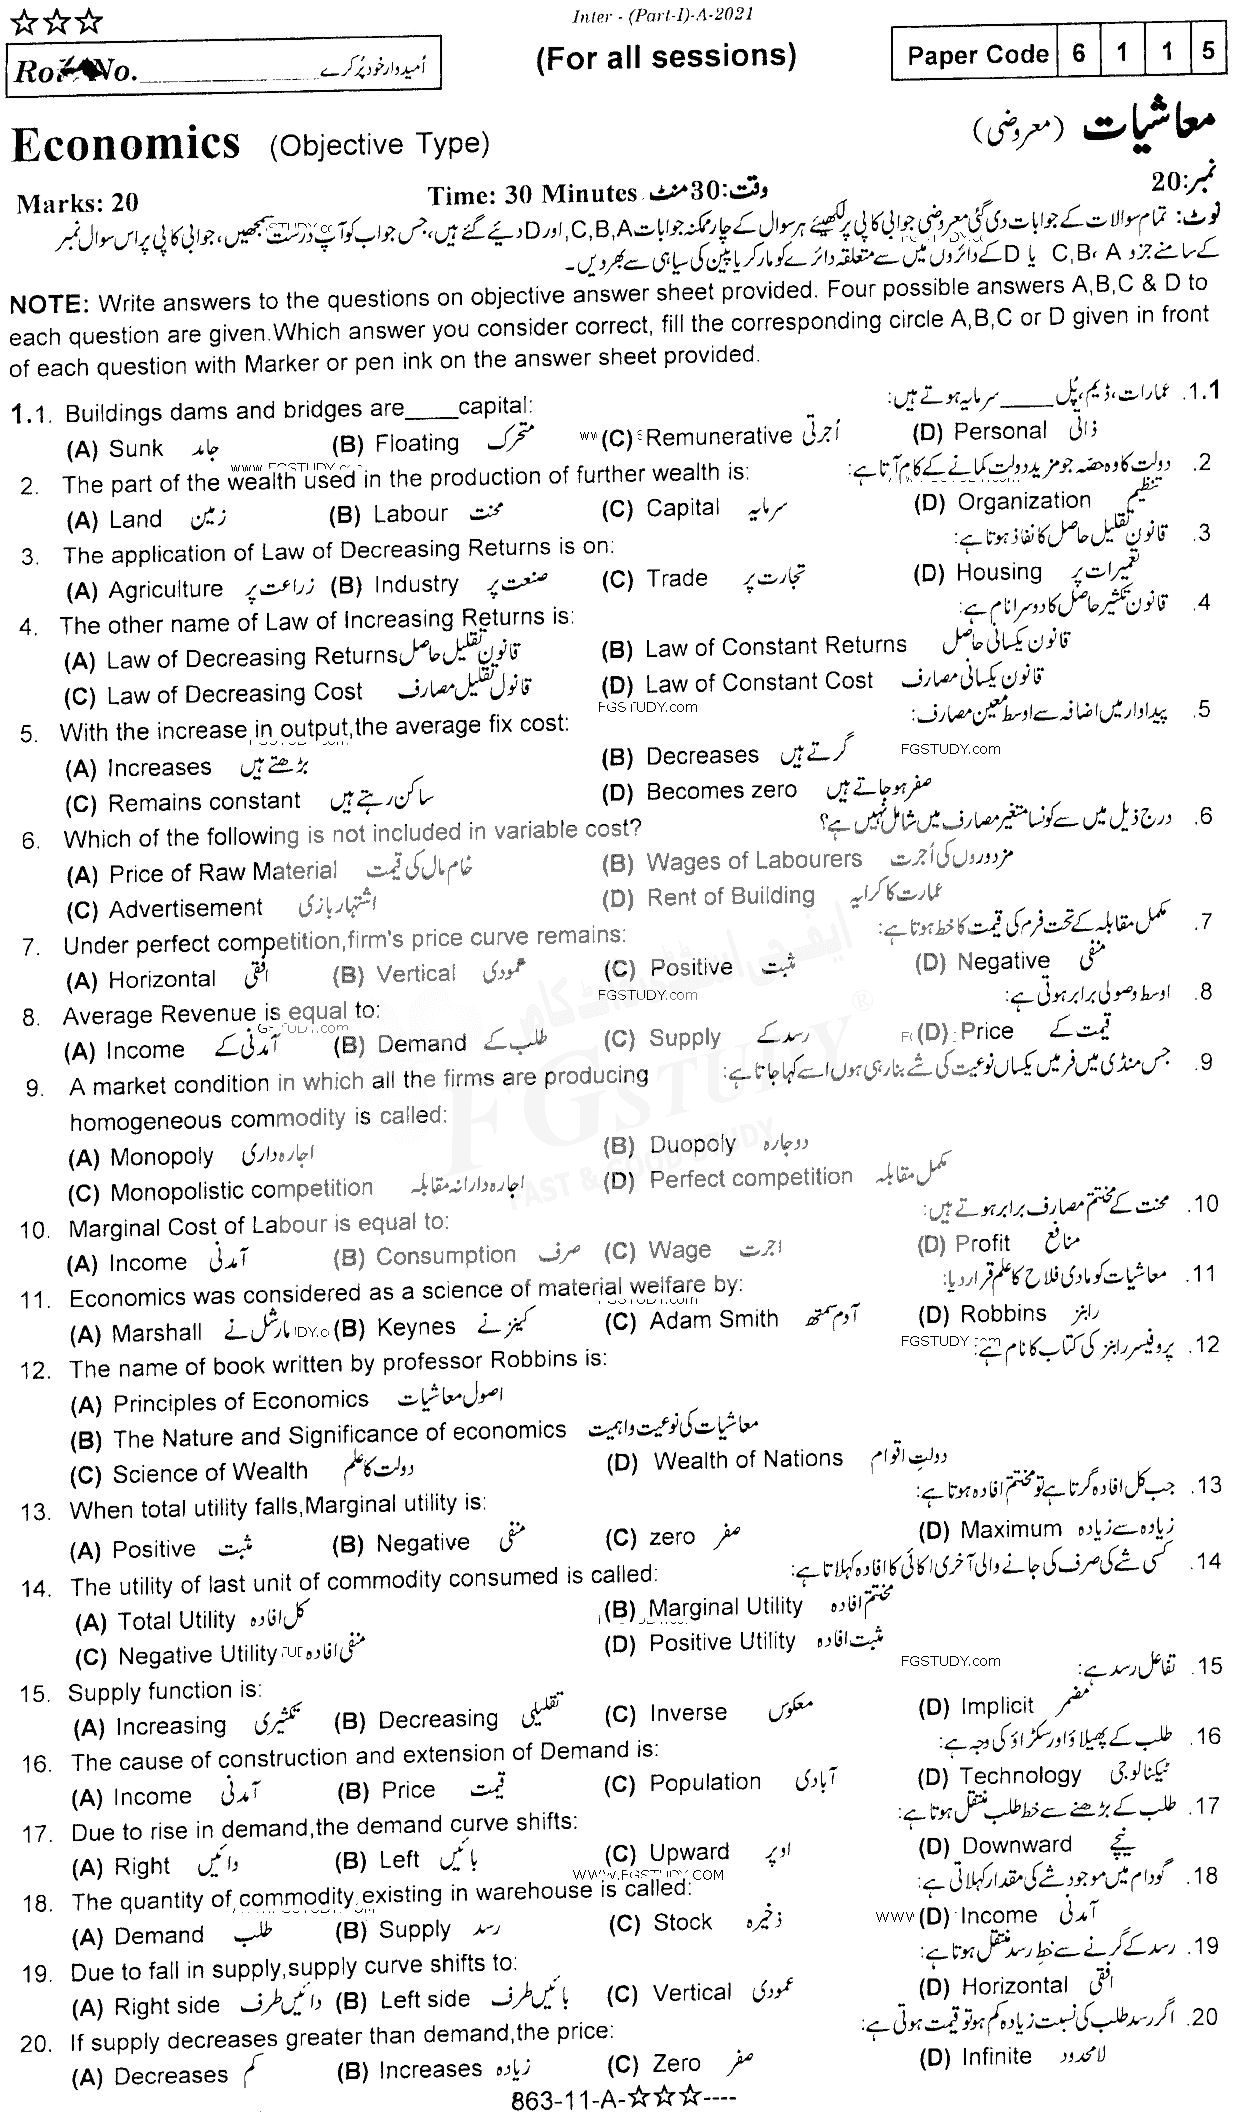 ☆☆☆
Inter - (Part-I)-A-2021
Roll No.____________ اُمیدوار خود پُر کرے
(For all sessions)
Paper Code 6 1 1 5
Economics (Objective Type) معاشیات (معروضی)
Marks: 20 Time: 30 Minutes وقت: 30 منٹ نمبر: 20
نوٹ: تمام سوالات کے جوابات دی گئی معروضی جوابی کاپی پر لکھیئے ہر سوال کے چار ممکنہ جوابات C,B,A اور D دیئے گئے ہیں، جس جواب کو آپ درست سمجھیں، جوابی کاپی پر اس سوال نمبر
کے سامنے جزو C,B، A یا D کے دائروں میں سے متعلقہ دائرے کو مارکر یا پین کی سیاہی سے بھر دیں۔
NOTE: Write answers to the questions on objective answer sheet provided. Four possible answers A,B,C & D to
each question are given.Which answer you consider correct, fill the corresponding circle A,B,C or D given in front
of each question with Marker or pen ink on the answer sheet provided.
1.1. Buildings dams and bridges are____capital: 1.1. عمارات، ڈیم، پُل ____ سرمایہ ہوتے ہیں:
(A) Sunk جامد (B) Floating متحرک (C) Remunerative اُجرتی (D) Personal ذاتی
2. The part of the wealth used in the production of further wealth is: 2. دولت کا وہ حصہ جو مزید دولت کمانے کے کام آتا ہے:
(A) Land زمین (B) Labour محنت (C) Capital سرمایہ (D) Organization تنظیم
3. The application of Law of Decreasing Returns is on: 3. قانون تقلیل حاصل کا نفاذ ہوتا ہے:
(A) Agriculture زراعت پر (B) Industry صنعت پر (C) Trade تجارت پر (D) Housing تعمیرات پر
4. The other name of Law of Increasing Returns is: 4. قانون تکثیر حاصل کا دوسرا نام ہے:
(A) Law of Decreasing Returns قانون تقلیل حاصل (B) Law of Constant Returns قانون یکسانی حاصل
(C) Law of Decreasing Cost قانون تقلیل مصارف (D) Law of Constant Cost قانون یکسانی مصارف
FGSTUDY.com
5. With the increase in output,the average fix cost: 5. پیداوار میں اضافہ سے اوسط معین مصارف:
(A) Increases بڑھتے ہیں (B) Decreases گرتے ہیں FGSTUDY.com
(C) Remains constant ساکن رہتے ہیں (D) Becomes zero صفر ہو جاتے ہیں
6. Which of the following is not included in variable cost? 6. درج ذیل میں سے کونسا متغیر مصارف میں شامل نہیں ہے؟
(A) Price of Raw Material خام مال کی قیمت (B) Wages of Labourers مزدوروں کی اُجرت
(C) Advertisement اشتہار بازی (D) Rent of Building عمارت کا کرایہ
7. Under perfect competition,firm's price curve remains: 7. مکمل مقابلہ کے تحت فرم کی قیمت کا خط ہوتا ہے:
(A) Horizontal افقی (B) Vertical عمودی (C) Positive مثبت (D) Negative منفی
FGSTUDY.com
8. Average Revenue is equal to: 8. اوسط وصولی برابر ہوتی ہے:
(A) Income آمدنی کے (B) Demand طلب کے (C) Supply رسد کے (D) Price قیمت کے
9. A market condition in which all the firms are producing 9. جس منڈی میں فرمیں یکساں نوعیت کی شے بنا رہی ہوں اسے کہا جاتا ہے:
homogeneous commodity is called:
(A) Monopoly اجارہ داری (B) Duopoly دو جارہ
(C) Monopolistic competition اجارہ دارانہ مقابلہ (D) Perfect competition مکمل مقابلہ
10. Marginal Cost of Labour is equal to: 10. محنت کے مختتم مصارف برابر ہوتے ہیں:
(A) Income آمدنی (B) Consumption صرف (C) Wage اجرت (D) Profit منافع
11. Economics was considered as a science of material welfare by: 11. معاشیات کو مادی فلاح کا علم قرار دیا:
(A) Marshall مارشل نے (B) Keynes کینز نے (C) Adam Smith آدم سمتھ (D) Robbins رابنز
12. The name of book written by professor Robbins is: FGSTUDY.com 12. پروفیسر رابنز کی کتاب کا نام ہے:
(A) Principles of Economics اصول معاشیات
(B) The Nature and Significance of economics معاشیات کی نوعیت و اہمیت
(C) Science of Wealth دولت کا علم (D) Wealth of Nations دولتِ اقوام
13. When total utility falls,Marginal utility is: 13. جب کل افادہ گرتا ہے تو مختتم افادہ ہوتا ہے:
(A) Positive مثبت (B) Negative منفی (C) zero صفر (D) Maximum زیادہ سے زیادہ
14. The utility of last unit of commodity consumed is called: 14. کسی شے کی صرف کی جانے والی آخری اکائی کا افادہ کہلاتا ہے:
(A) Total Utility کل افادہ (B) Marginal Utility مختتم افادہ
(C) Negative Utility منفی افادہ (D) Positive Utility مثبت افادہ
FGSTUDY.com
15. Supply function is: 15. تفاعل رسد ہے:
(A) Increasing تکثیری (B) Decreasing تقلیلی (C) Inverse معکوس (D) Implicit مضمر
16. The cause of construction and extension of Demand is: 16. طلب کے پھیلاؤ اور سکڑاؤ کی وجہ ہے:
(A) Income آمدنی (B) Price قیمت (C) Population آبادی (D) Technology ٹیکنالوجی
17. Due to rise in demand,the demand curve shifts: 17. طلب کے بڑھنے سے خط طلب منتقل ہوتا ہے:
(A) Right دائیں (B) Left بائیں (C) Upward اوپر (D) Downward نیچے
WWW.FGSTUDY.COM
18. The quantity of commodity existing in warehouse is called: 18. گودام میں موجود شے کی مقدار کہلاتی ہے:
(A) Demand طلب (B) Supply رسد (C) Stock ذخیرہ (D) Income آمدنی
19. Due to fall in supply,supply curve shifts to: 19. رسد کے گرنے سے خطِ رسد منتقل ہوتا ہے:
(A) Right side دائیں طرف (B) Left side بائیں طرف (C) Vertical عمودی (D) Horizontal افقی
20. If supply decreases greater than demand,the price: 20. اگر رسد طلب کی نسبت زیادہ کم ہو تو قیمت ہوتی ہے:
(A) Decreases کم (B) Increases زیادہ (C) Zero صفر (D) Infinite لامحدود
863-11-A-☆☆☆----